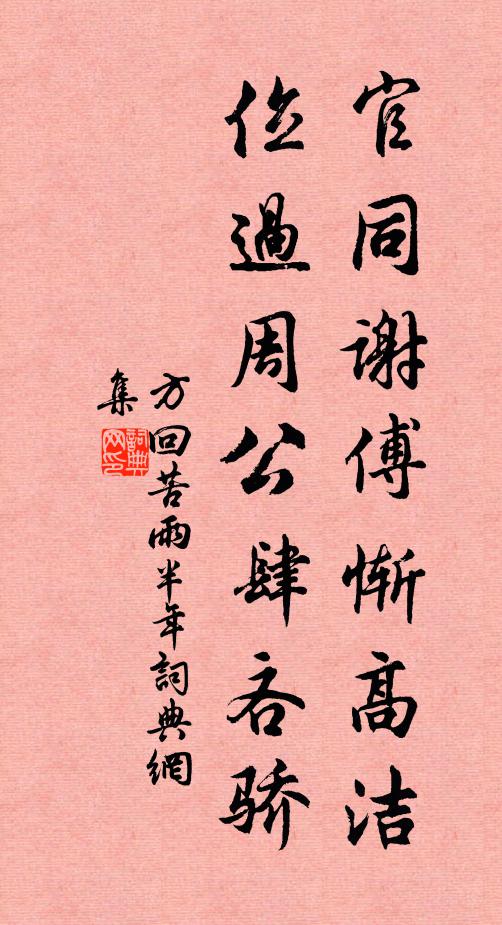 官同谢傅惭高洁
位過周公肆吝骄
方回苦雨半年詞典網
集
詞典
网印